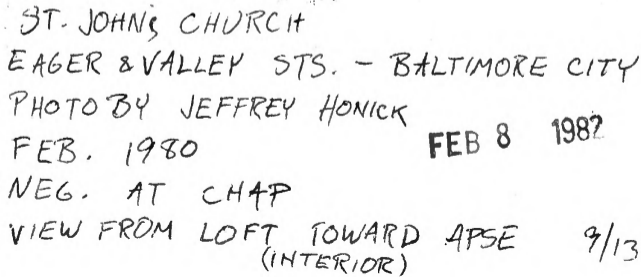 ST. JOHN'S CHURCH
EAGER & VALLEY STS. - BALTIMORE CITY
PHOTO BY JEFFREY HONICK
FEB. 1980
FEB 8 1982
NEG. AT CHAP
VIEW FROM LOFT TOWARD APSE 9/13
(INTERIOR)